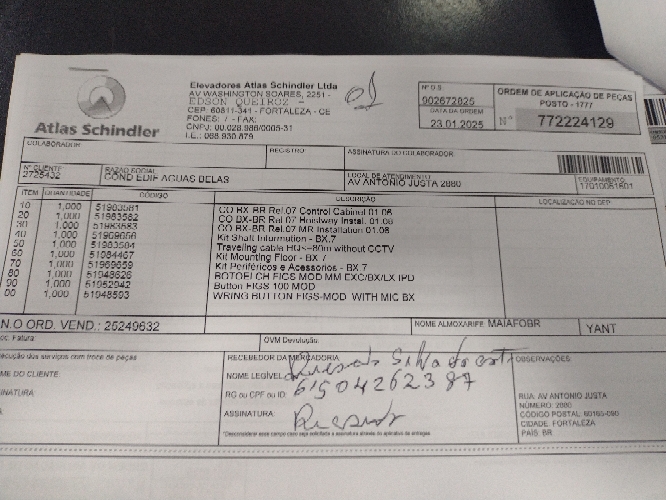 Elevadores Atlas Schindler Ltda
AV WASHINGTON SOARES, 2251 -
EDSON QUEIROZ -
CEP: 60811-341 - FORTALEZA - CE
FONES: / - FAX:
CNPJ: 00.028.986/0005-31
I.E.: 068.930.879
Atlas Schindler
Nº O.S.
902672825
DATA DA ORDEM
23.01.2025
ORDEM DE APLICAÇÃO DE PEÇAS
POSTO - 1777
Nº 772224129
COLABORADOR
REGISTRO
ASSINATURA DO COLABORADOR
Nº CLIENTE
2725432
RAZÃO SOCIAL
COND EDIF AGUAS BELAS
LOCAL DE ATENDIMENTO
AV ANTONIO JUSTA 2880
EQUIPAMENTO
ITEM QUANTIDADE CÓDIGO DESCRIÇÃO LOCALIZAÇÃO NO DEP.
10 1,000 51983581 CO BX-BR Rel.07 Control Cabinet 01.06
20 1,000 51983582 CO BX-BR Rel.07 Hoistway Instal. 01.06
30 1,000 51983583 CO BX-BR Rel.07 MR Installation 01.06
40 1,000 51969656 Kit Shaft Information - BX.7
50 1,000 Traveling cable HQ<=80m without CCTV
60 1,000 51984467 Kit Mounting Floor - BX 7
70 1,000 51969659 Kit Periféricos e Acessorios - BX.7
80 1,000 51948626 FIGS MOD MM EXC/BX/LX IPD
90 1,000 51952042 Button FIGS 100 MOD
1,000 51948593 WRING BUTTON FIGS-MOD WITH MIC BX
N.O ORD. VEND.: 25249632
NOME ALMOXARIFE: MAIAFOBR
YANT
oc. Fatura:
OVM Devolução:
ecução dos serviços com troca de peças
ME DO CLIENTE:
NATURA:
RECEBEDOR DA MERCADORIA
NOME LEGÍVEL:
RG ou CPF ou ID: 61504262387
ASSINATURA:
OBSERVAÇÕES
RUA: AV ANTONIO JUSTA
NÚMERO: 2880
CÓDIGO POSTAL: 60165-090
CIDADE: FORTALEZA
PAÍS: BR